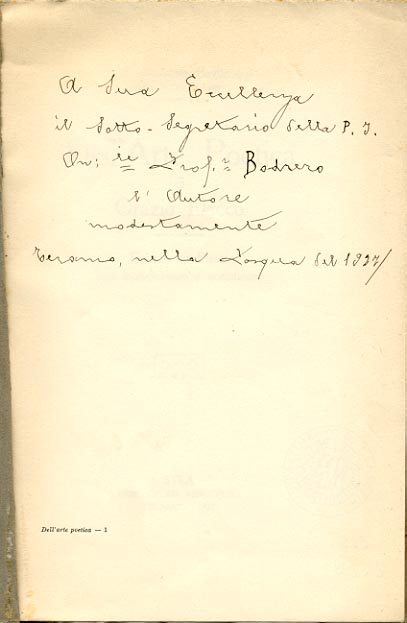 A Sua Eccellenza
il Sotto-Segretario della P. I.
On: le Prof.r Bodrero
l'Autore
modestamente
Teramo, nella Pasqua del 1927/
Dell'arte poetica — 1